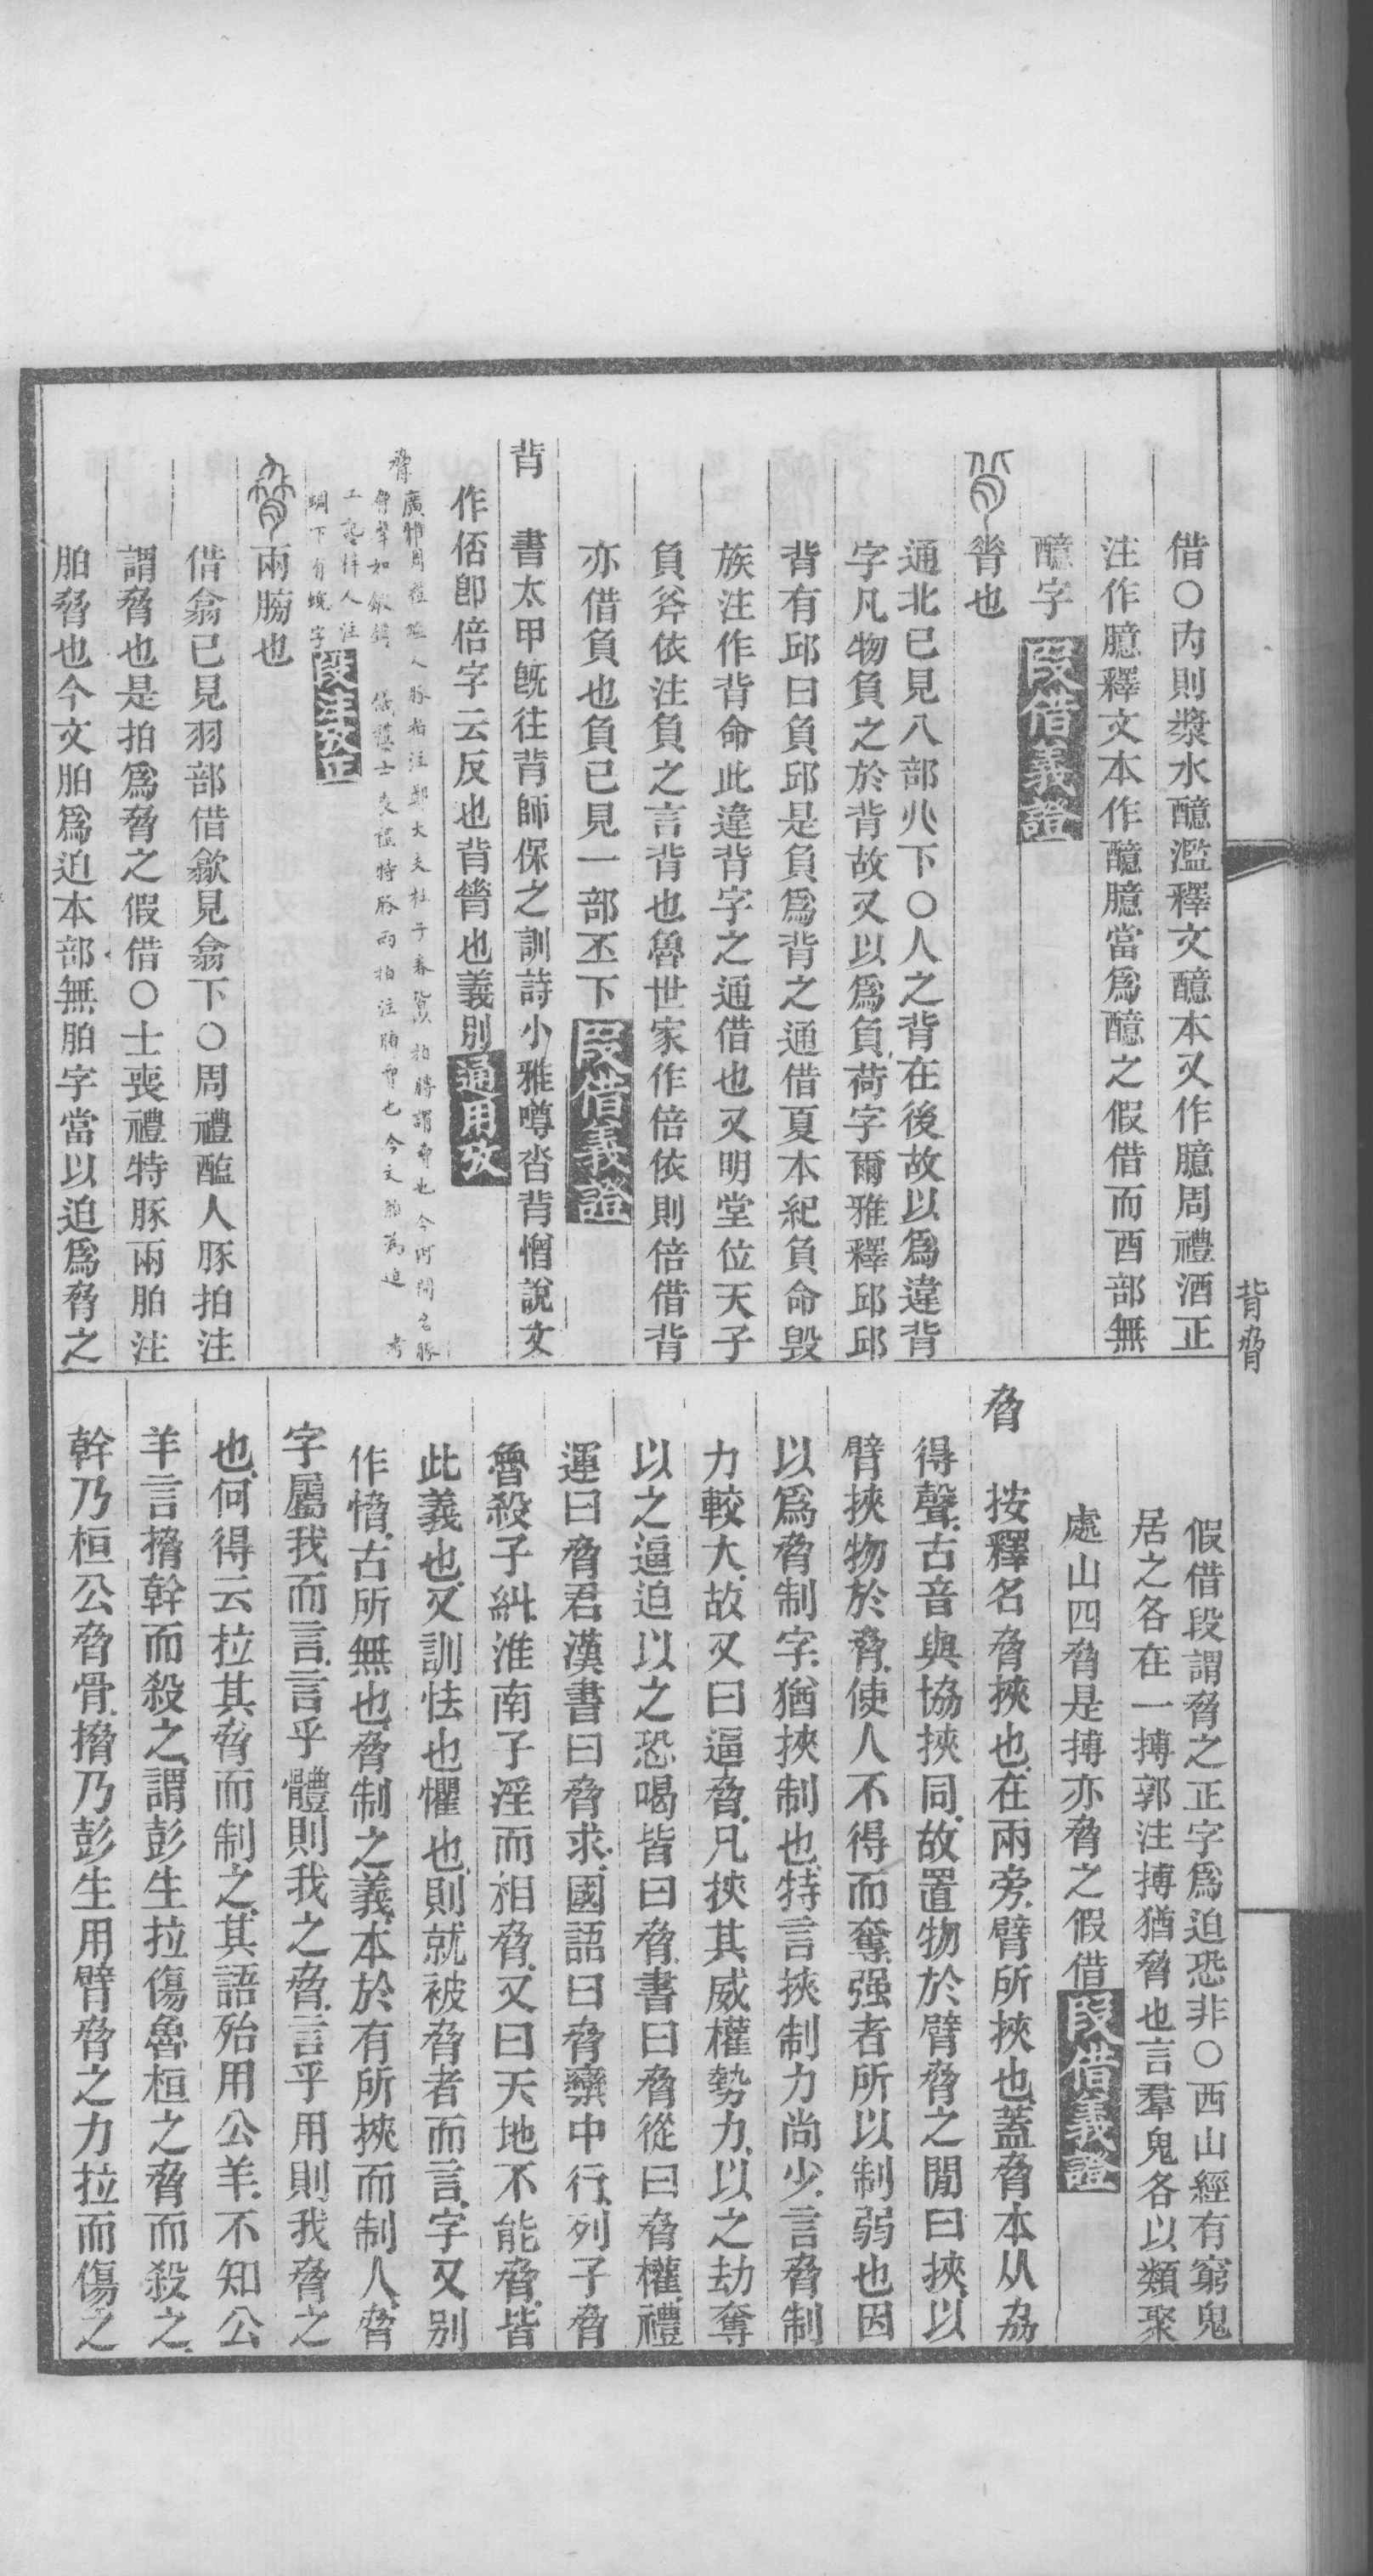 借〇內則漿水醷濫釋文醷本又作臆周禮酒正
注作臆釋文本作醷臆當爲醷之假借而酉部無
醷字 叚借義證
脊也
通北已見八部𠔁下〇人之背在後故以爲違背
字凡物負之於背故又以爲負荷字爾雅釋邱邱
背有邱曰負邱是負爲背之通借夏本紀負命毀
族注作背命此違背字之通借也又明堂位天子
負斧依注負之言背也魯世家作倍依則倍借背
亦借負也負已見一部丕下 叚借義證
背 書太甲旣往背師保之訓詩小雅噂沓背憎說文
作偝卽倍字云反也背脊也義別 通用攷
脅 廣雅周禮醢人豚拍注鄭大夫杜子春皆以拍爲膊謂脅也今河閒名豚
脅聲如鍜鎛 儀禮士喪禮特豚兩拍注胉脅也今文胉爲迫 考
工記梓人注
蜩下有蛻字 段注攷正
兩膀也
借翕已見羽部借歙見翕下〇周禮醢人豚拍注
謂脅也是拍爲脅之假借〇士喪禮特豚兩胉注
胉脅也今文胉爲迫本部無胉字當以迫爲脅之
背脅
假借段謂脅之正字爲迫恐非〇西山經有窮鬼
居之各在一搏郭注搏猶脅也言羣鬼各以類聚
處山四脅是搏亦脅之假借 叚借義證
脅 按釋名脅挾也在兩旁臂所挾也蓋脅本从劦
得聲古音與協挾同故置物於臂脅之閒曰挾以
臂挾物於脅使人不得而奪强者所以制弱也因
以爲脅制字猶挾制也特言挾制力尚少言脅制
力較大故又曰逼脅凡挾其威權勢力以之劫奪
以之逼迫以之恐喝皆曰脅書曰脅從曰脅權禮
運曰脅君漢書曰脅求國語曰脅欒中行列子脅
魯殺子糾淮南子淫而相脅又曰天地不能脅皆
此義也又訓怯也懼也則就被脅者而言字又別
作愶古所無也脅制之義本於有所挾而制人脅
字屬我而言言乎體則我之脅言乎用則我脅之
也何得云拉其脅而制之其語殆用公羊不知公
羊言搚幹而殺之謂彭生拉傷魯桓之脅而殺之
幹乃桓公脅骨搚乃彭生用臂脅之力拉而傷之